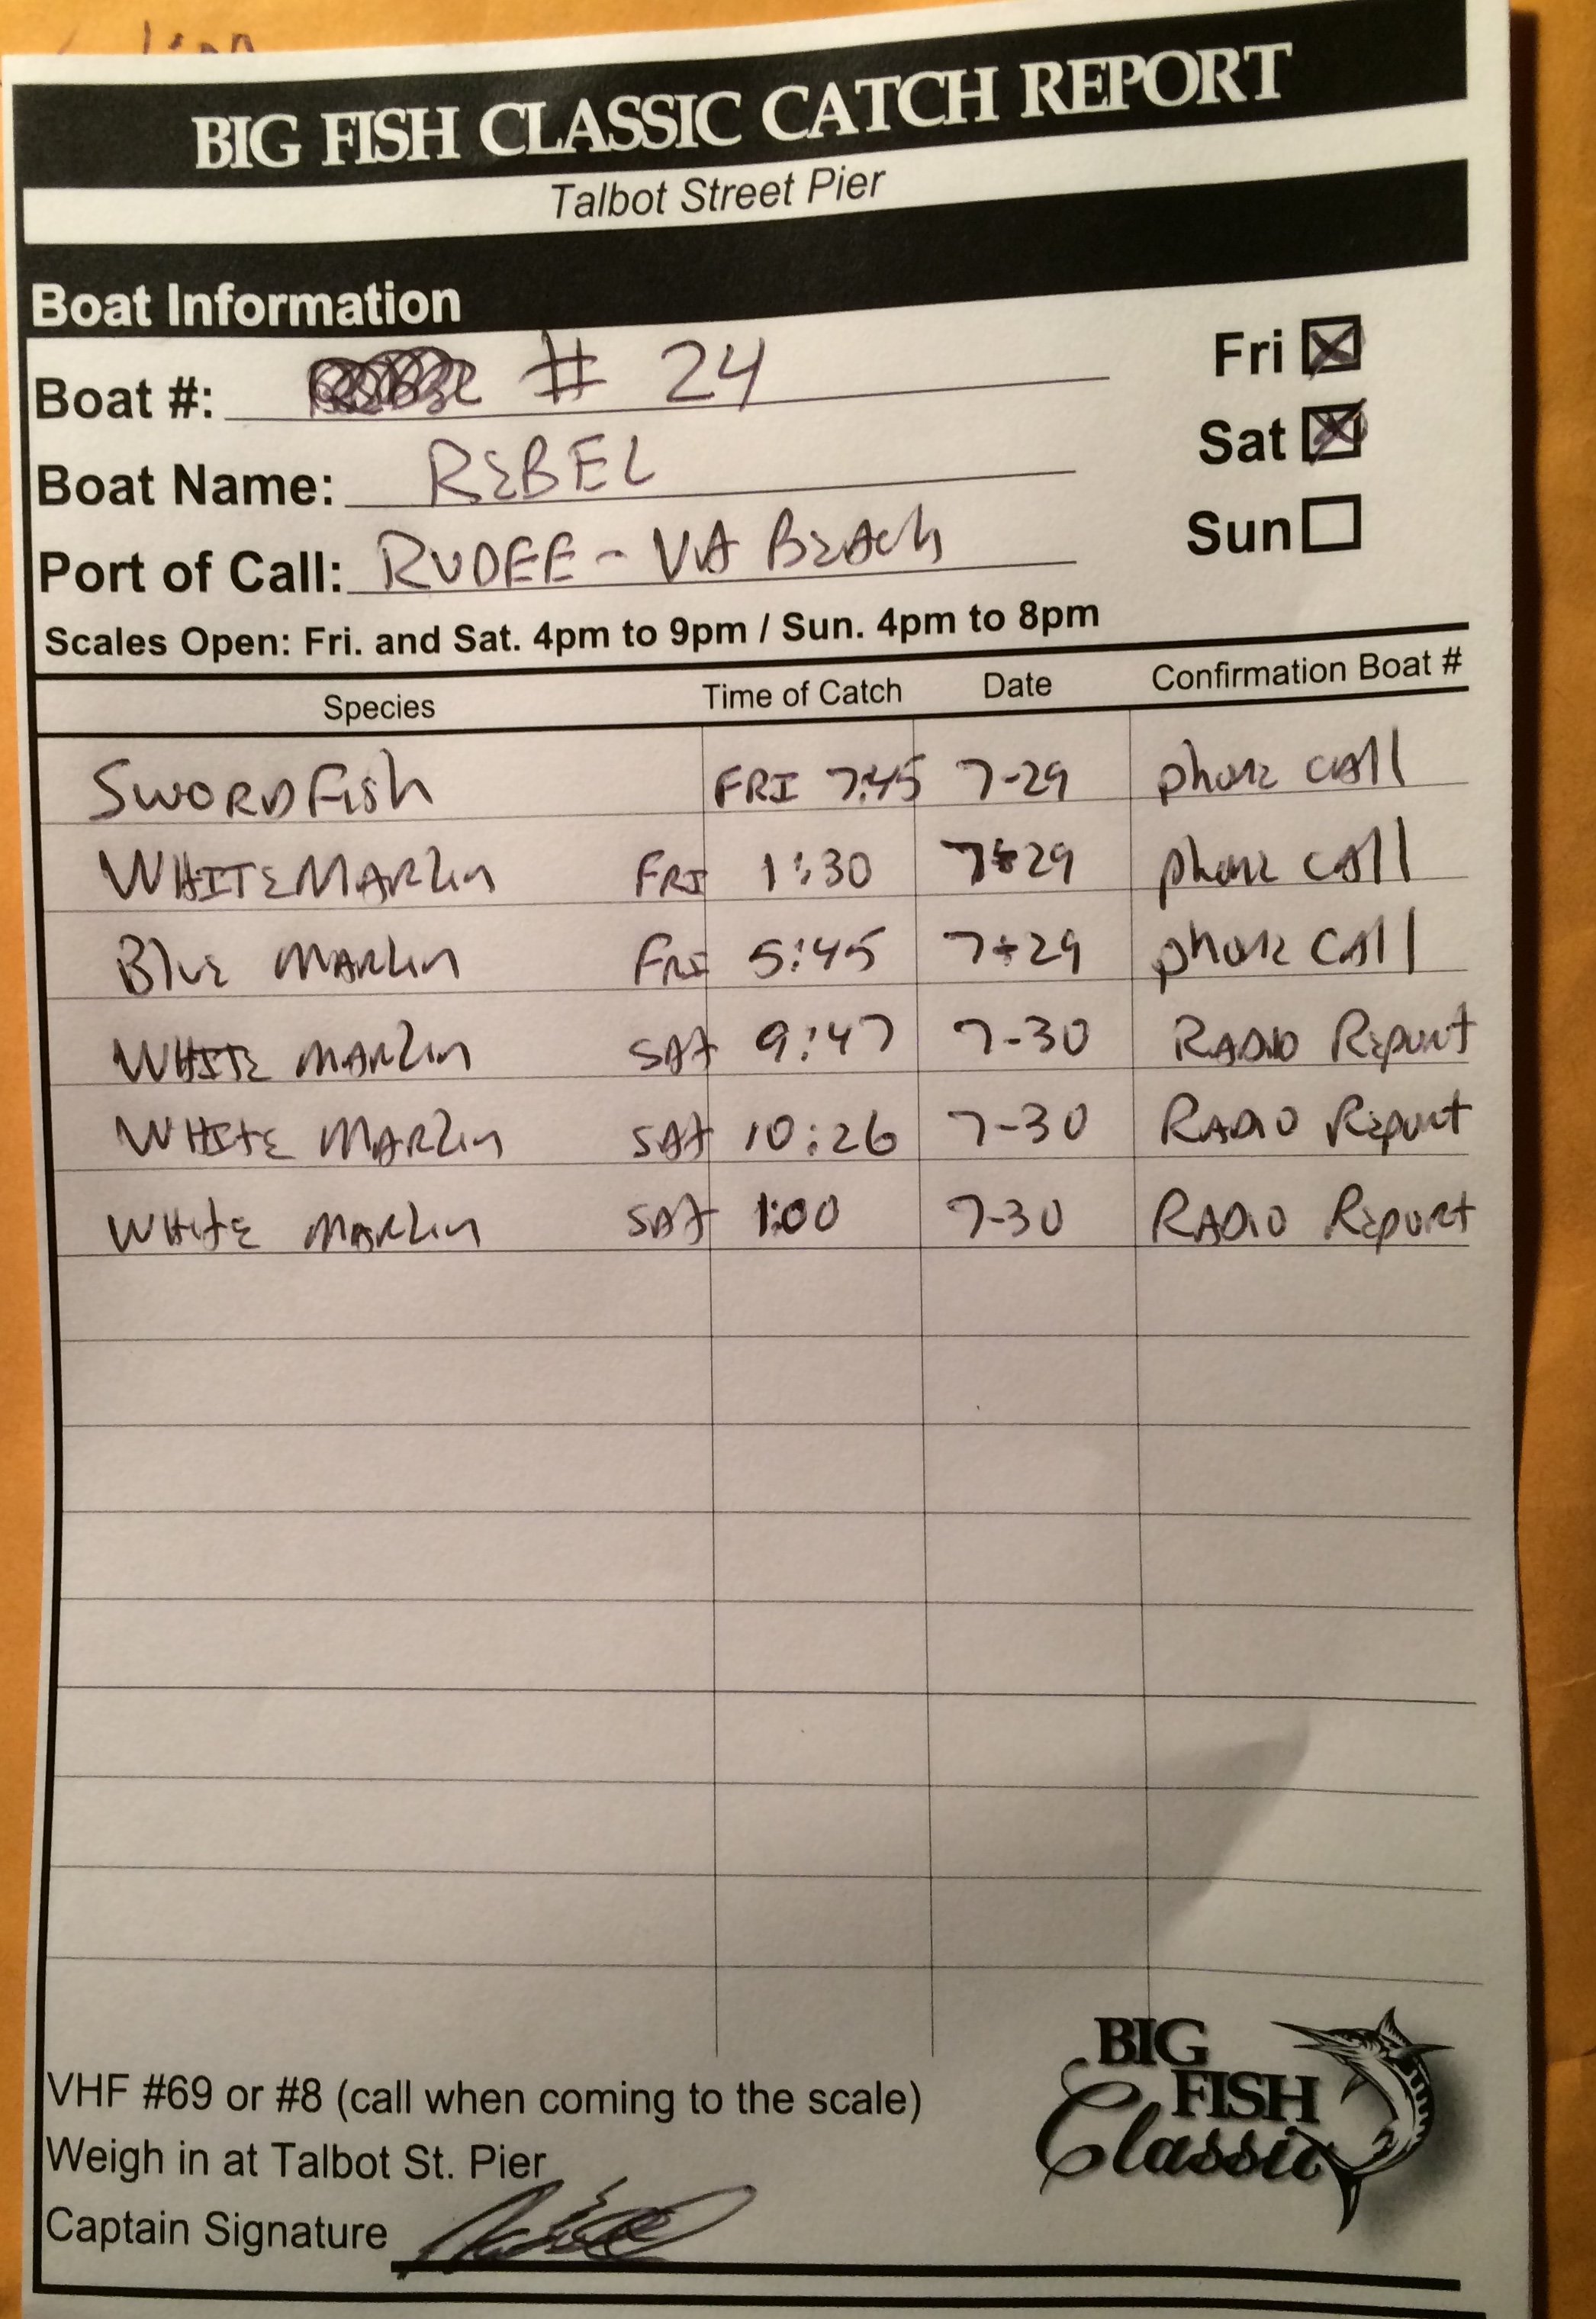 BIG FISH CLASSIC CATCH REPORT
Talbot Street Pier
Boat Information
Boat #: # 24
Fri
Boat Name: REBEL
Sat
Port of Call: RUDEE - VA BEACH
Sun
Scales Open: Fri. and Sat. 4pm to 9pm / Sun. 4pm to 8pm
Species Time of Catch Date Confirmation Boat #
SWORDFish FRI 7:45 7-29 phone call
WHITE MARLin FRI 1:30 7-29 phone call
Blue MARLin FRI 5:45 7-29 phone call
WHITE MARLin SAT 9:47 7-30 RADIO REPORT
WHITE MARLin SAT 10:26 7-30 RADIO REPORT
WHITE MARLin SAT 1:00 7-30 RADIO REPORT
VHF #69 or #8 (call when coming to the scale)
Weigh in at Talbot St. Pier
Captain Signature
BIG
FISH
Classic